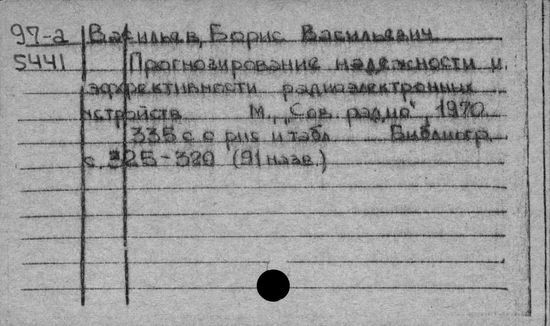 97-2 Васильев, Борис Васильевич
5441 Прогнозирование надежности и
эффективности радиоэлектронных
устройств М., „Сов. радио", 1970
335 с. с рис и табл Библиогр
с. 325-330 (91 назв.)